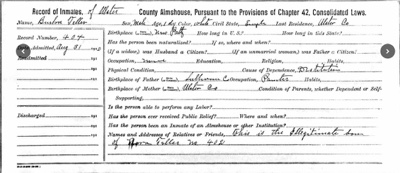 Record of Inmates, of Ulster County Almshouse, Pursuant to the Provisions of Chapter 42, Consolidated Laws.
Name, Teller Sex, Male Age, Color, Civil State, Single Last Residence, Ulster Co
Record Number, 404 Birthplace New Paltz How long in U. S.? How long in this State?
Has the person been naturalized? If so, where and when?
Admitted, Aug 31 191
(If a widow) was Husband a Citizen? (If an unmarried woman) was Father a Citizen?
Readmitted Occupation, none Education, Religion, Habits,
191 Physical Condition, Cause of Dependence, Destitution
191 Birthplace of Father, Sullivan C Occupation, Painter Habits,
191 Birthplace of Mother, Ulster Co Condition of Parents, whether Dependent or Self-
191 Supporting,
191 Is the person able to perform any Labor?
Discharged Has the person ever received Public Relief? Where and when?
191 Has the person been an Inmate of an Almshouse or other Institution?
191 Names and Addresses of Relatives or Friends, This is the Illegitimate son
191 of Teller no 402
191